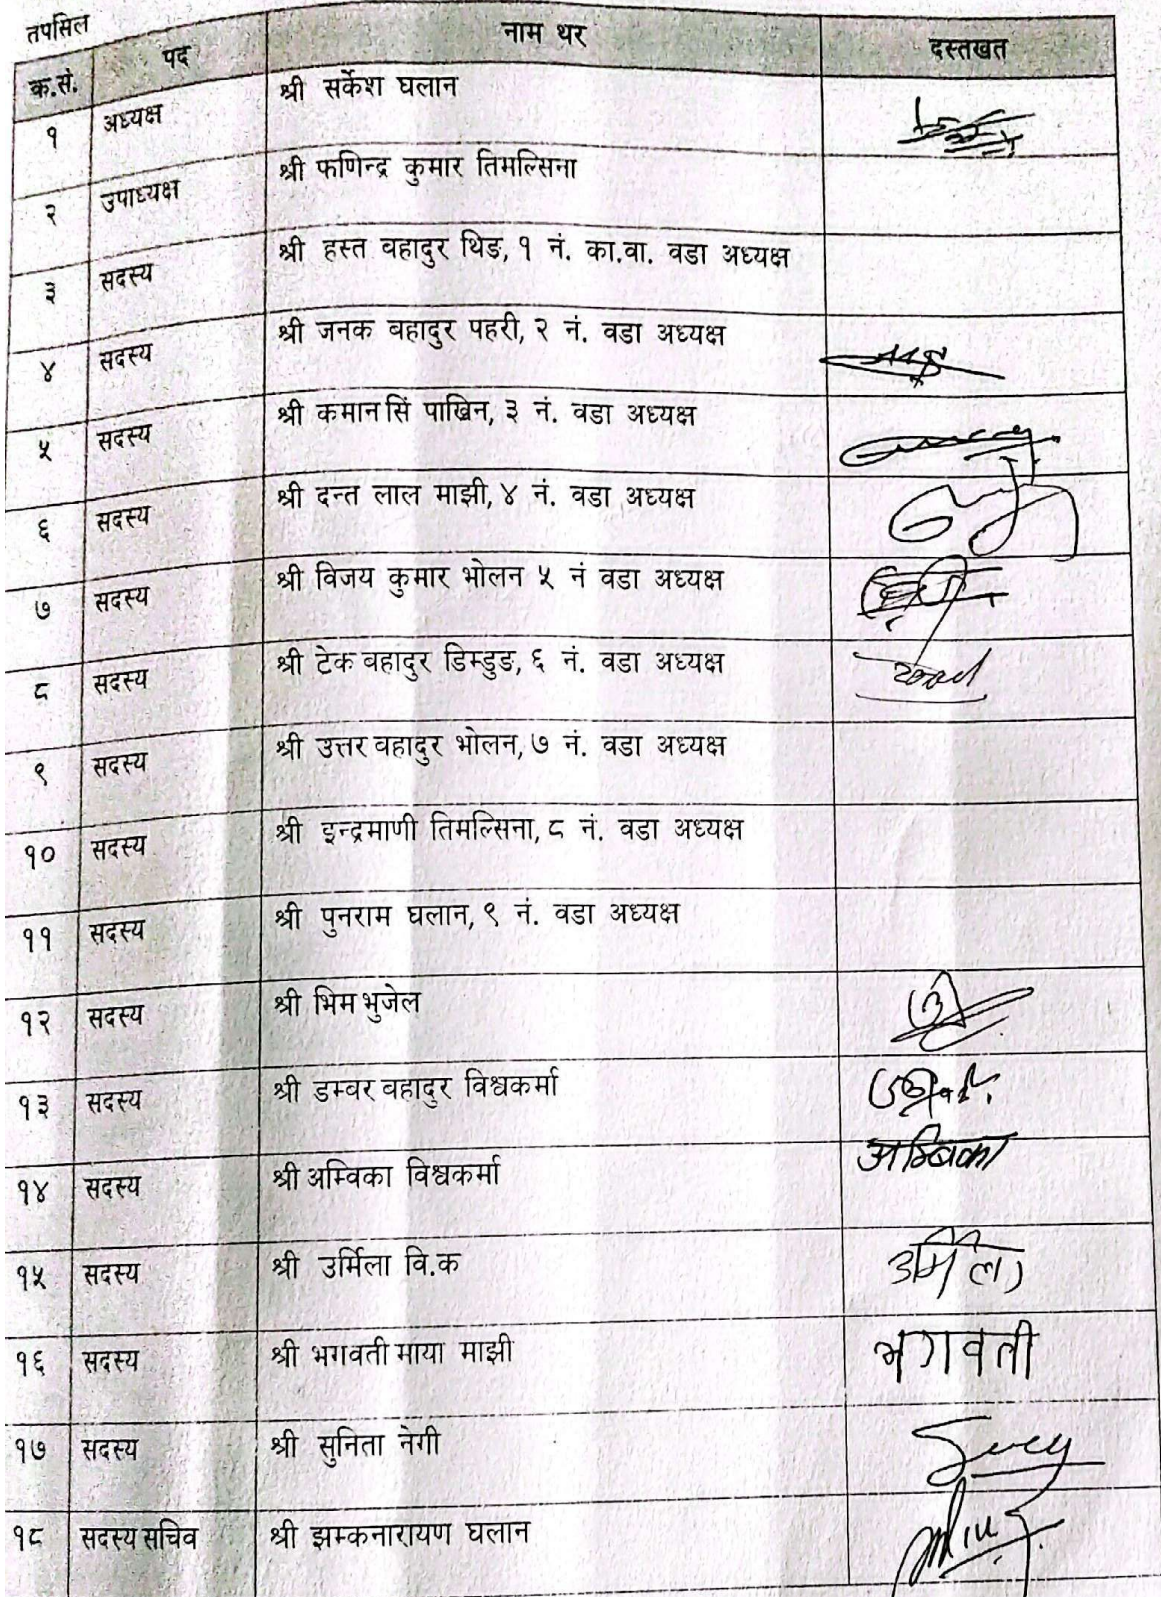 तपसिल
क.सं. पद नाम थर दस्तखत
१ अध्यक्ष श्री सर्केश घलान
२ उपाध्यक्ष श्री फणिन्द्र कुमार तिमल्सिना
३ सदस्य श्री हस्त बहादुर थिङ, १ नं. का.वा. वडा अध्यक्ष
४ सदस्य श्री जनक बहादुर पहरी, २ नं. वडा अध्यक्ष
५ सदस्य श्री कमान सिं पाख्रिन, ३ नं. वडा अध्यक्ष
६ सदस्य श्री दन्त लाल माझी, ४ नं. वडा अध्यक्ष
७ सदस्य श्री विजय कुमार भोलन ५ नं वडा अध्यक्ष
८ सदस्य श्री टेक बहादुर डिम्डुङ, ६ नं. वडा अध्यक्ष
९ सदस्य श्री उत्तर वहादुर भोलन, ७ नं. वडा अध्यक्ष
१० सदस्य श्री इन्द्रमाणी तिमल्सिना, ८ नं. वडा अध्यक्ष
११ सदस्य श्री पुनराम घलान, ९ नं. वडा अध्यक्ष
१२ सदस्य श्री भिम भुजेल
१३ सदस्य श्री डम्वर वहादुर विश्वकर्मा
१४ सदस्य श्री अम्विका विश्वकर्मा अम्बिका
१५ सदस्य श्री उर्मिला वि.क उर्मिला
१६ सदस्य श्री भगवती माया माझी भगवती
१७ सदस्य श्री सुनिता नेगी
१८ सदस्य सचिव श्री झम्कनारायण घलान